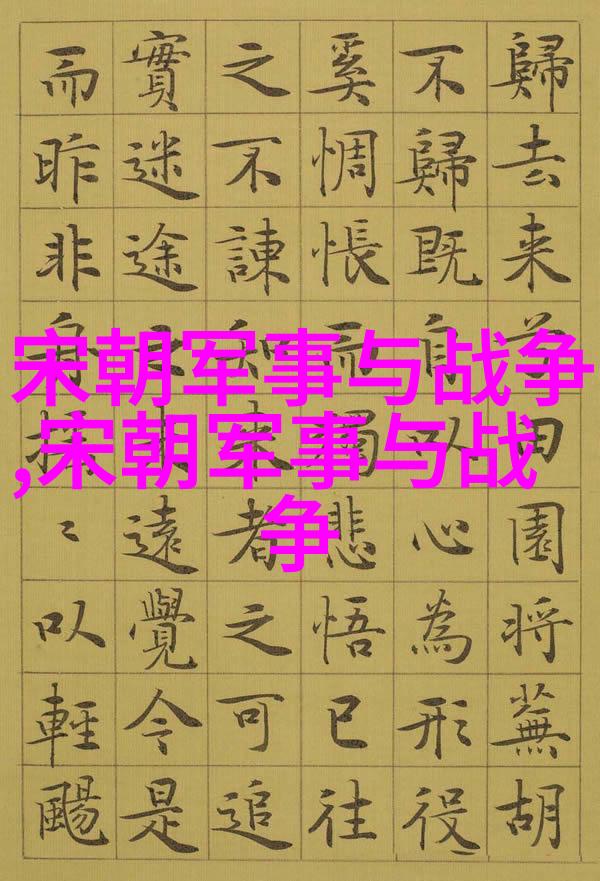 歸去来兮田園将蕪胡
不歸既自以心為形役
奚惆悵而獨悲悟已往
之不諫知来者之可追
實迷途遠覺今是
而昨非舟々以輕颺
宋朝军事与战争
,宋朝军事与战
争